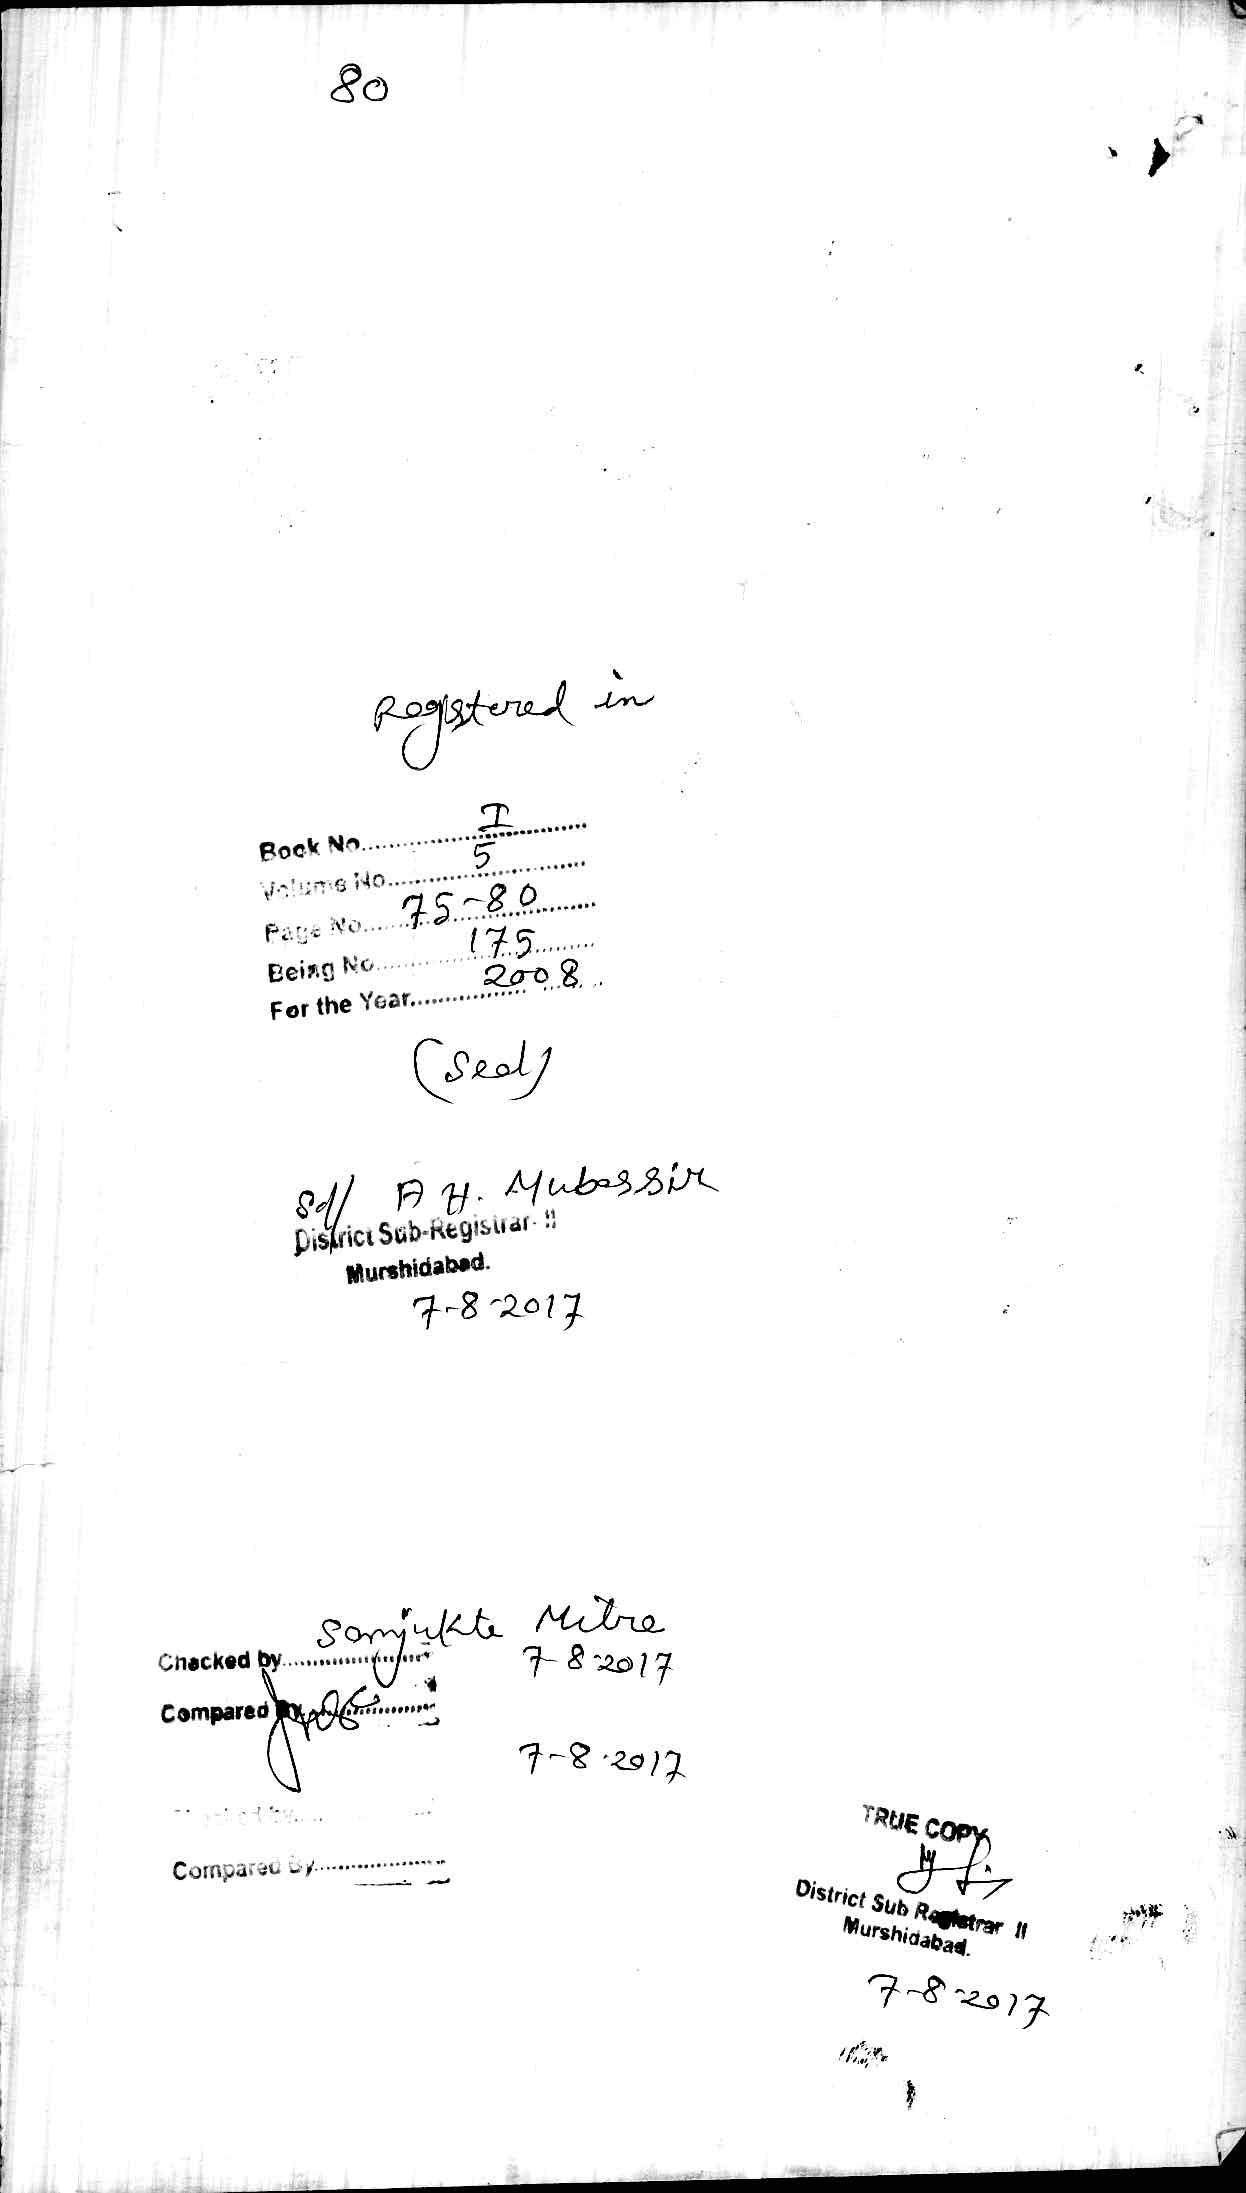 80
Registered in
Book No. I
Volume No. 5
Page No. 75-80
Being No. 175
For the Year 2008
(Seal)
Sd/ A H. Mubassir
District Sub-Registrar-II
Murshidabad.
7-8-2017
Sanjukta Mitra
Checked by 7-8-2017
Compared By
7-8-2017
Compared By
TRUE COPY
District Sub Registrar II
Murshidabad.
7-8-2017